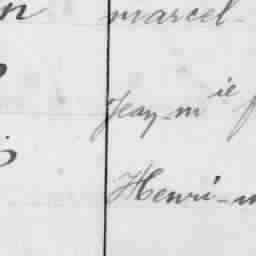 n marcel
Jean-m ie
Henri-m